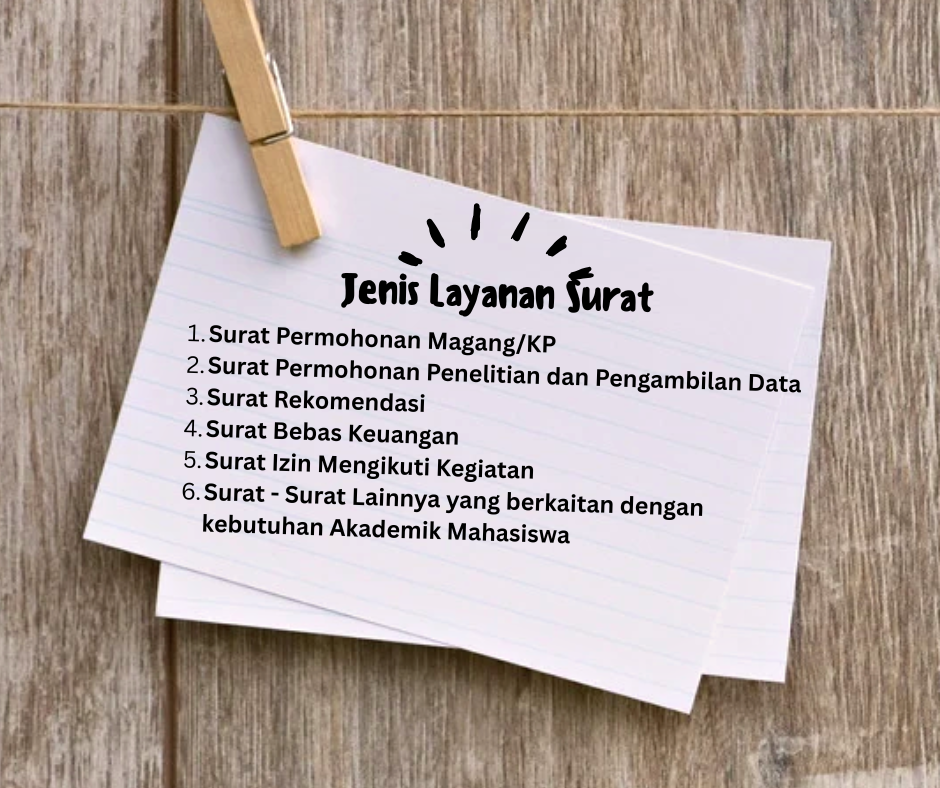 Jenis Layanan Surat
1. Surat Permohonan Magang/KP
2. Surat Permohonan Penelitian dan Pengambilan Data
3. Surat Rekomendasi
4. Surat Bebas Keuangan
5. Surat Izin Mengikuti Kegiatan
6. Surat - Surat Lainnya yang berkaitan dengan
kebutuhan Akademik Mahasiswa